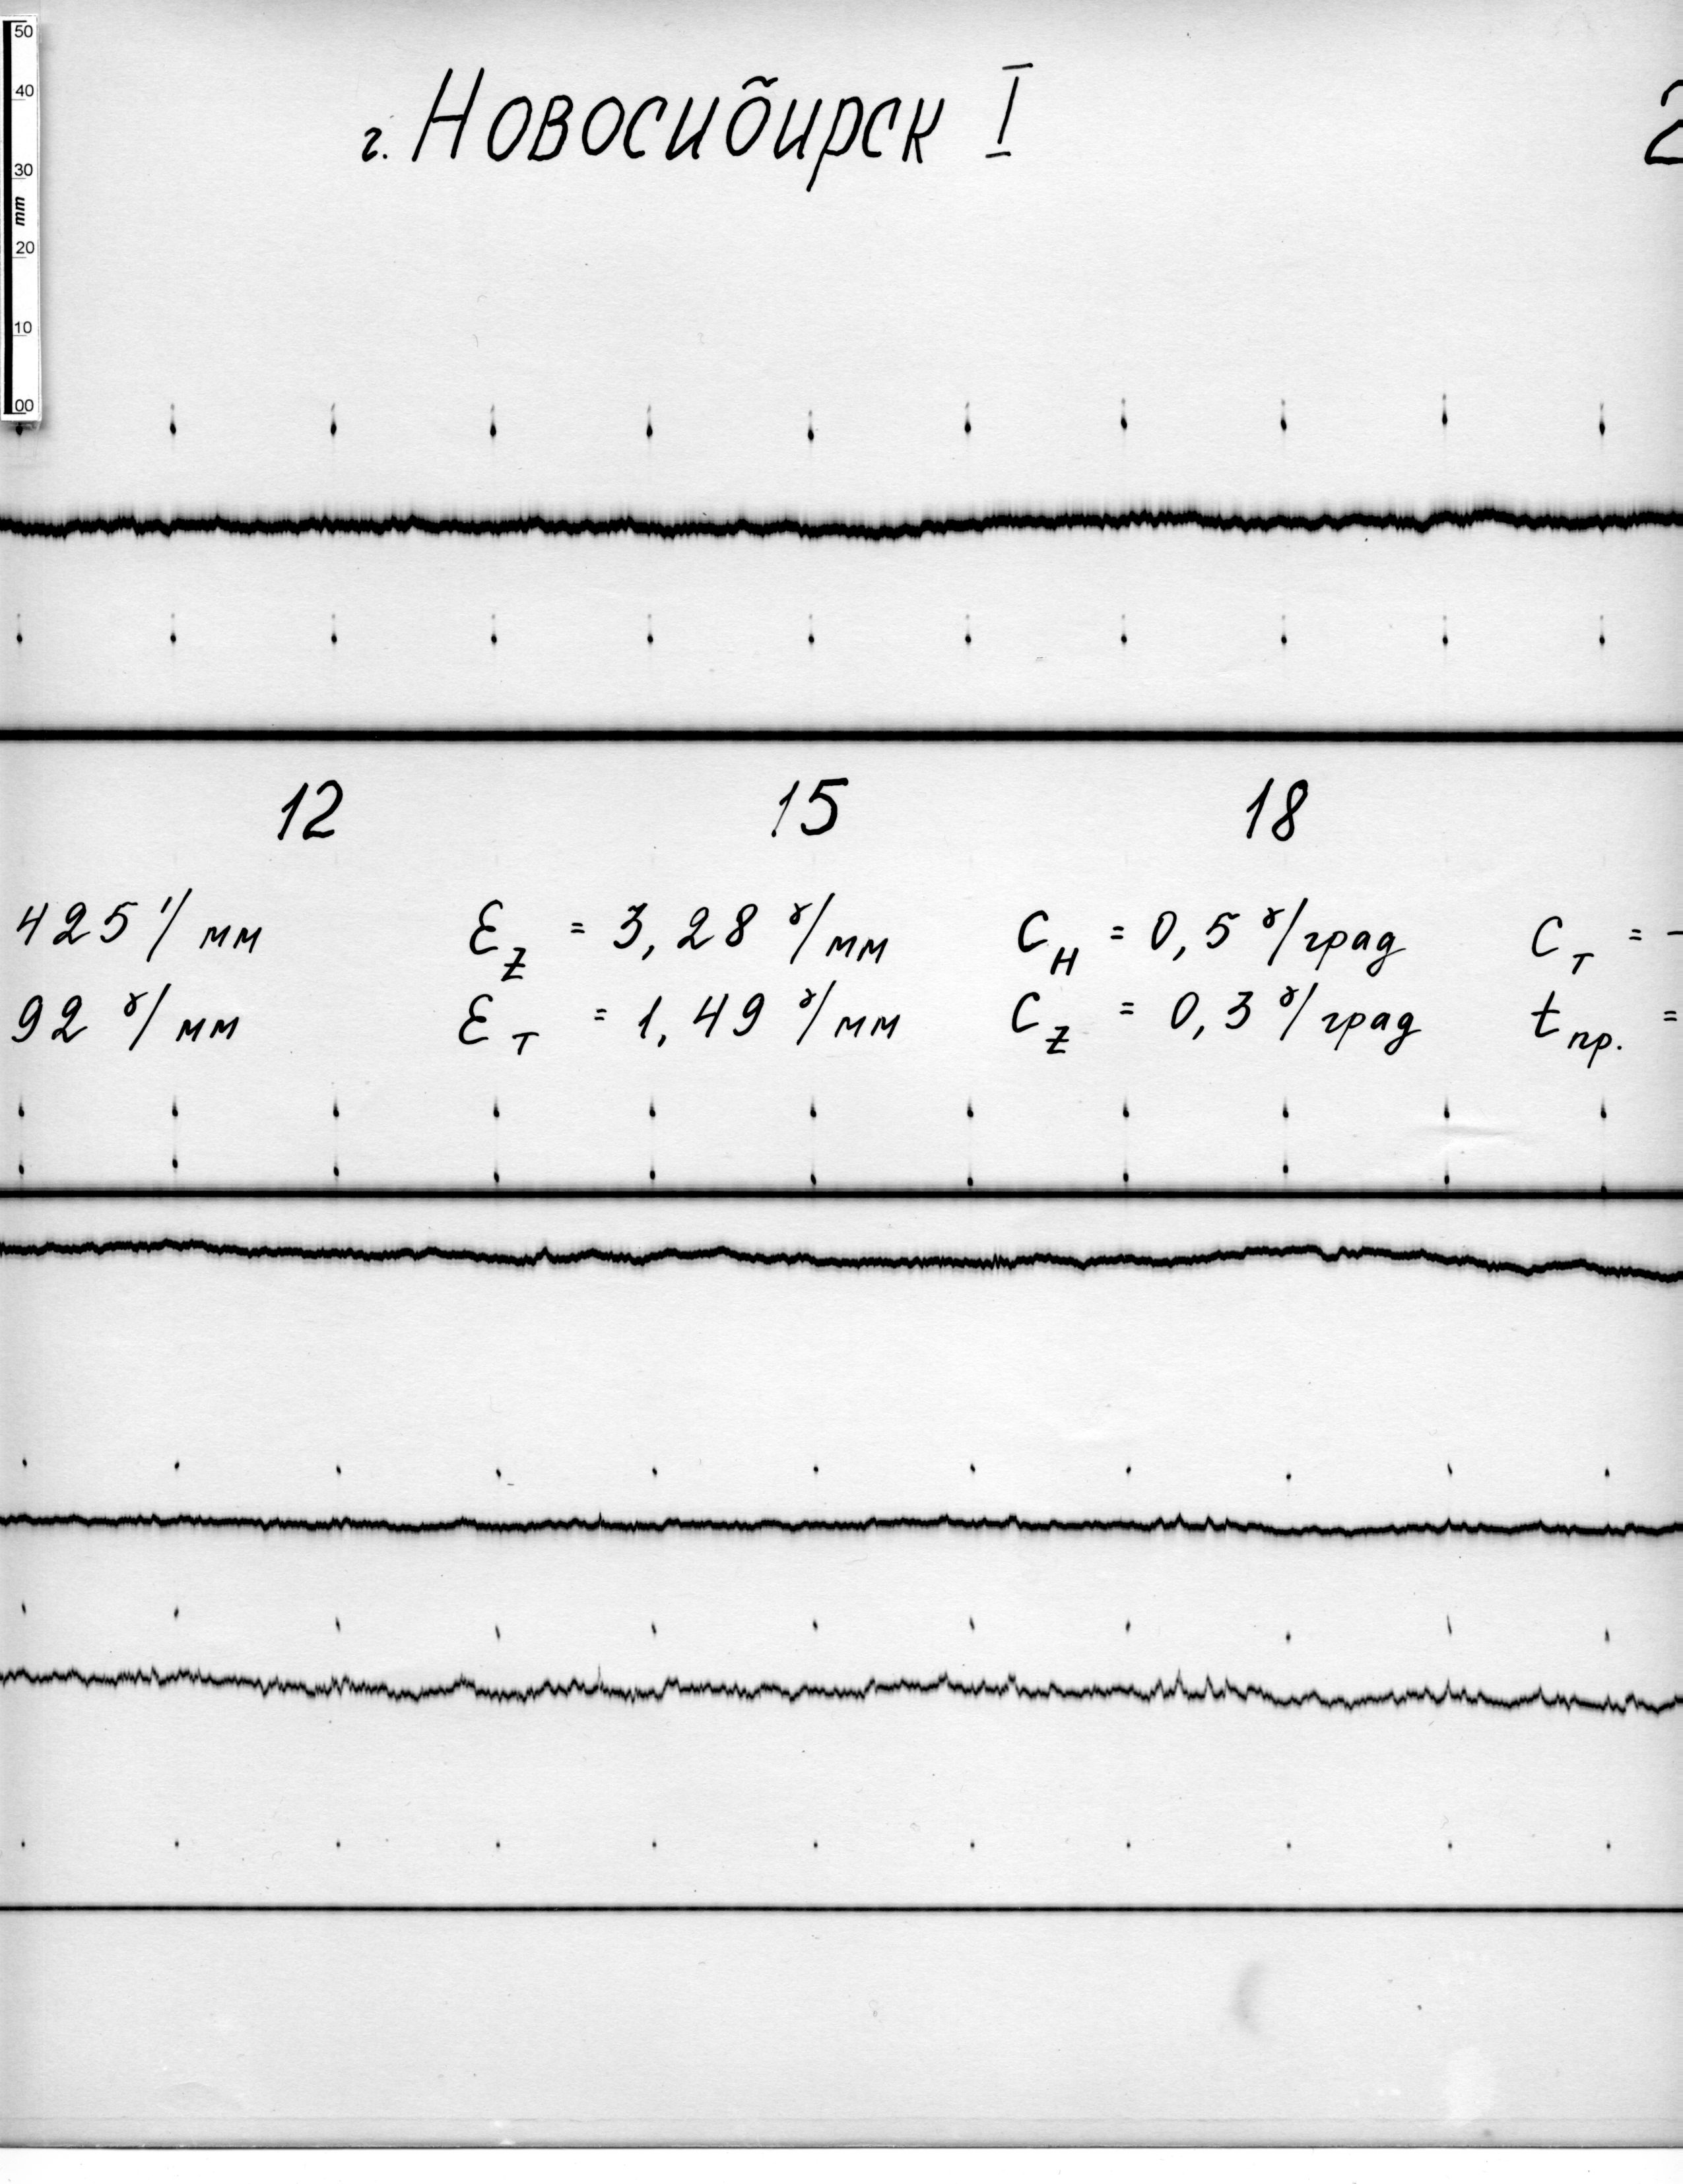 50
40
30
mm
20
10
00
г. Новосибирск I
2
12 15 18
425 '/мм Ɛ_Z = 3,28 γ/мм C_H = 0,5 γ/град C_T = -
92 γ/мм Ɛ_T = 1,49 γ/мм C_Z = 0,3 γ/град t_пр. =